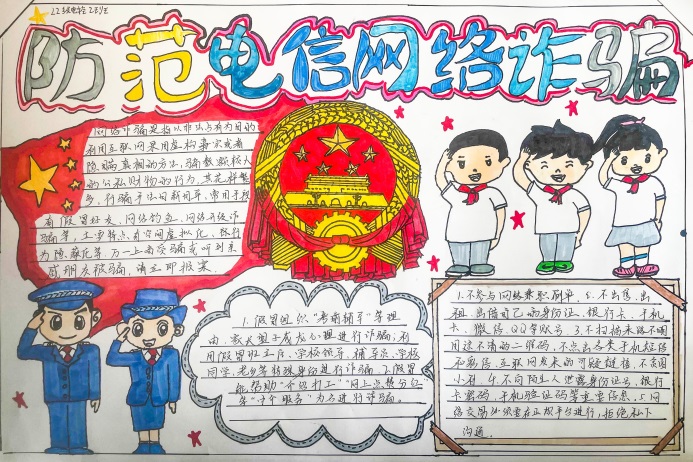 22级电轻2班
防范电信网络诈骗
网络诈骗是指以非法占有为目的
利用互联网采用虚构事实或者
隐瞒真相的方法，骗取数额较大
的公私财物的行为，其花样繁
多，行骗手法日新月异，常用手段
有假冒好友、网络钓鱼、网银升级诈
骗等，主要特点有空间虚拟化、行为
隐蔽化等，万一上当受骗或听到亲
戚朋友被骗，请立即报案
1.假冒组织“考前辅导”等理
由，最大望子成龙心理进行诈骗，利
用假冒班主任、学校领导、辅导员、学校
同学、老乡等特殊身份进行诈骗。2.假冒
能帮助“介绍打工”“网上点赞分红
等“中介服务”为名进行诈骗。
1.不参与网络兼职刷单，2.不出售、出
租、出借自己的身份证、银行卡、手机
卡、微信、QQ等账号 3.不扫描来路不明
用途不清的二维码，不点击各类手机短信
和彩信、互联网发来的可疑链接，不贪图
小利 4.不向陌生人泄露身份证号、银行
卡密码、手机验证码等重要信息，5.网
络交易必须要在正规平台进行，拒绝私下
沟通.